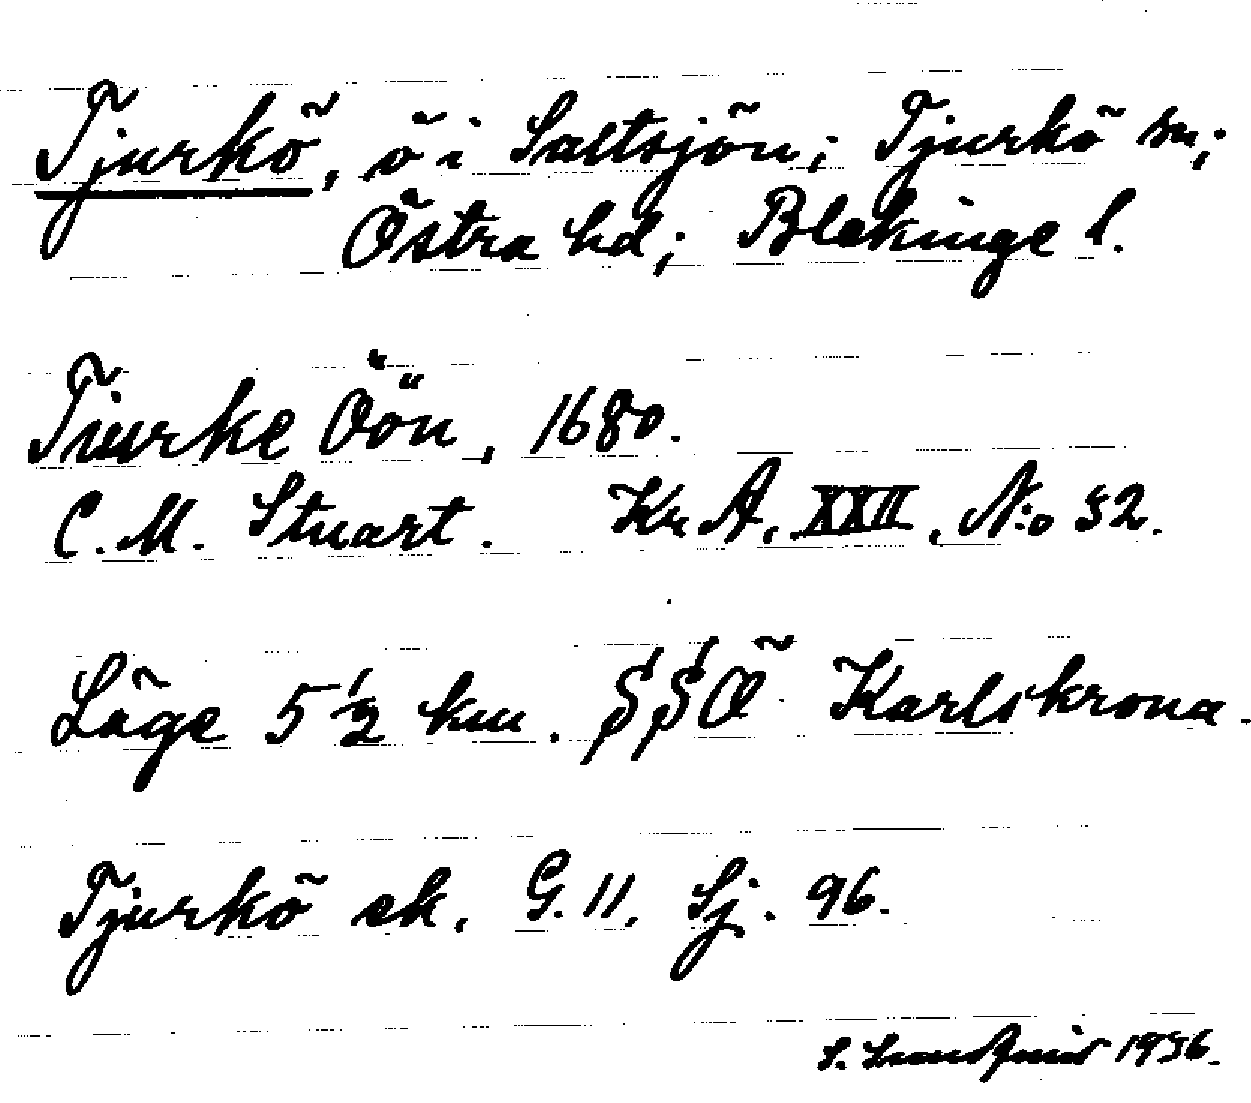 Tjurkö, ö i Saltsjön; Tjurkö sn;
Östra hd; Blekinge l.
Tiurke Öön, 1680.
C. M. Stuart. Kr A, XXII, N:o 32.
Läge 5 1/2 km. SSÖ Karlskrona.
Tjurkö ek. G. 11. Sj. 96.
S. 1936.